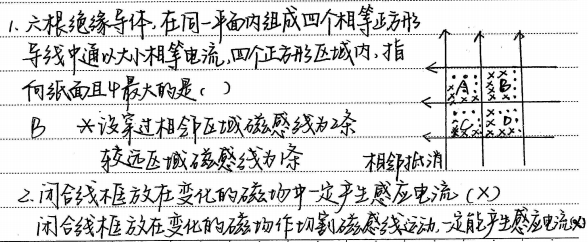 1. 六根绝缘导体，在同一平面内组成四个相等正方形
导线中通以大小相等电流，四个正方形区域内，指
向纸面且中最大的是（ ）
B *设穿过相邻区域磁感线为2条
较远区域磁感线为1条 相邻抵消
A B
C D
2. 闭合线框放在变化的磁场中一定产生感应电流（×）
闭合线框放在变化的磁场作切割磁感线运动，一定能产生感应电流(×)